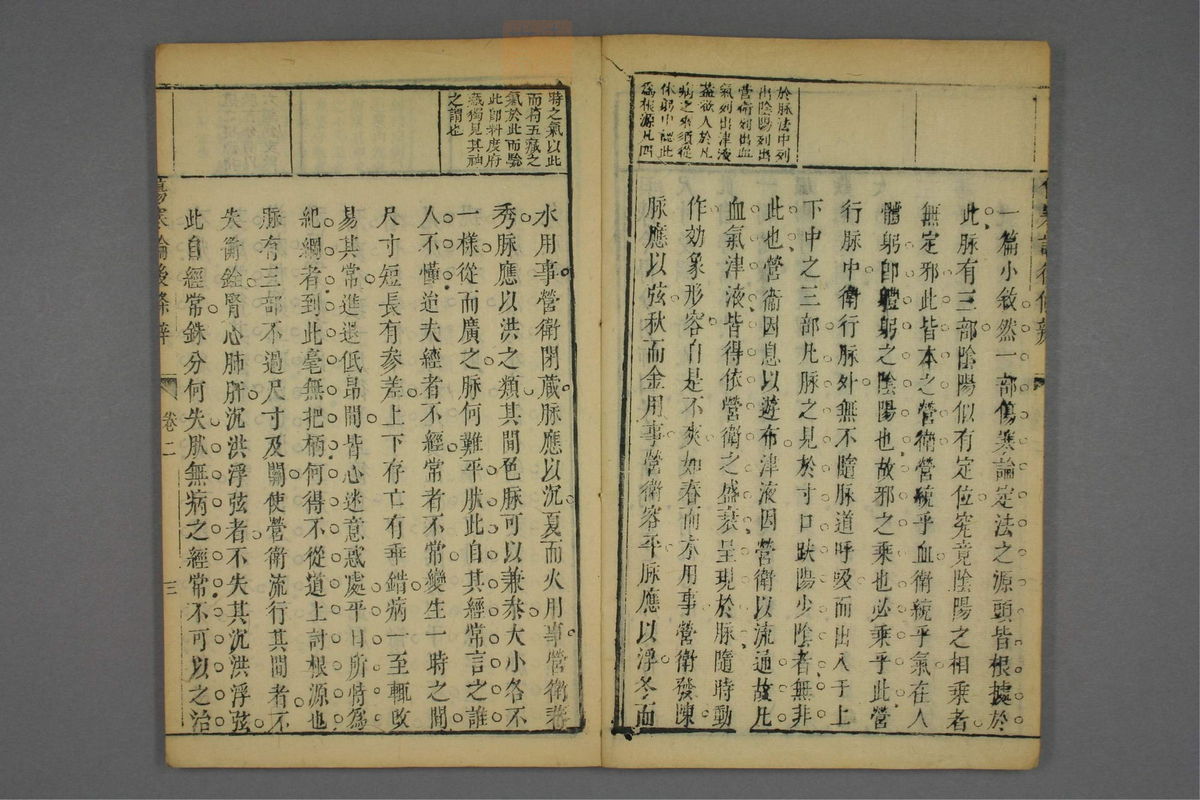 於脉法中列
出陰陽列出
營衛列出血
氣列出津液
蓋欲人於凡
病之來須從
體躬中認此
爲根源凡四
一篇小敘然一部傷寒論定法之源頭皆根據於
此脉有三部陰陽似有定位究竟陰陽之相乘者
無定邪此皆本之營衛營統乎血衛統乎氣在人
體躬卽體躬之陰陽也故邪之乘也必乘乎此營
行脉中衛行脉外無不隨脉道呼吸而出入于上
下中之三部凡脉之見於寸口趺陽少陰者無非
此也營衞因息以遊布津液因營衛以流通故凡
血氣津液皆得依營衛之盛衰呈現於脉隨時動
作効象形容自是不爽如春而木用事營衛發陳
脉應以弦秋而金用事營衛容平脉應以浮冬而
時之氣以此
而將五藏之
氣於此而驗
此卽料度府
藏獨見其神
之謂也
水用事營衛閉藏脉應以沉夏而火用事營衛蕃
秀脉應以洪之類其間色脉可以兼叅大小各不
一樣從而廣之脉何難平肰此自其經常言之誰
人不懂迨夫經者不經常者不常變生一時之間
尺寸短長有參差上下存亡有乖錯病一至輒改
易其常進退低昂間皆心迷意惑處平日所恃爲
紀綱者到此毫無把柄何得不從道上討根源也
脉有三部不過尺寸及關使營衛流行其間者不
失衡銓腎心肺肝沉洪浮弦者不失其沉洪浮弦
此自經常銖分何失肰無病之經常不可以之治
傷寒論後條辨
卷二
三